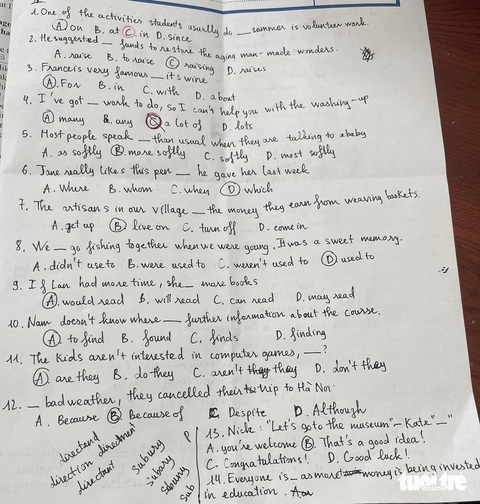 1. One of the activities students usually do __ summer is volunteer work.
A on B. at C. in D. since
2. He suggested __ funds to restore the aging man-made wonders.
A. raise B. to raise C raising D. raises
3. France is very famous __ its wine
A. For B. in C. with D. about
4. I've got __ work to do, so I can't help you with the washing-up
A many B. any C a lot of D. lots
5. Most people speak __ than usual when they are talking to a baby
A. as softly B. more softly C. softly D. most softly
6. Jane really likes this pen __ he gave her last week
A. Where B. whom C. when D which
7. The artisans in our village __ the money they earn from weaving baskets.
A. get up B live on C. turn off D. come in
8. We __ go fishing together when we were young. It was a sweet memory.
A. didn't use to B. were used to C. weren't used to D used to
9. If Lan had more time, she __ more books
A. would read B. will read C. can read D. may read
10. Nam doesn't know where __ further information about the course.
A to find B. found C. finds D. finding
11. The kids aren't interested in computer games, __?
A are they B. do they C. aren't they D. don't they
12. __ bad weather, they cancelled their trip to Ha Noi.
A. Because B Because of C Despite D. Although
13. Nick: "Let's go to the museum" - Kate "__"
A. you're welcome B. That's a good idea!
C. Congratulations! D. Good luck!
14. Everyone is __ as more money is being invested
in education.
direction
tuổi trẻ